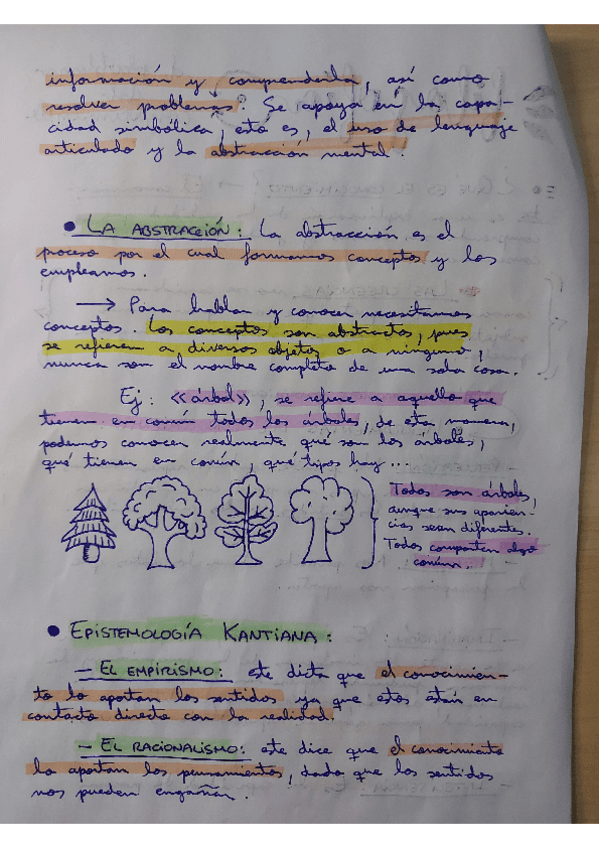 información y comprenderla, así como
resolver problemas. Se apoya en la capa-
cidad simbólica, esto es, el uso de lenguaje
articulado y la abstracción mental.
• LA ABSTRACCIÓN: La abstracción es el
proceso por el cual formamos conceptos y los
empleamos.
→ Para hablar y conocer necesitamos
conceptos. Los conceptos son abstractos, pues
se refieren a diversos objetos o a ninguno,
nunca son el nombre completo de una sola cosa.
Ej: «árbol», se refiere a aquello que
tienen en común todos los árboles, de esta manera,
podemos conocer realmente qué son los árboles,
qué tienen en común, qué tipos hay...
Todos son árboles,
aunque sus aparien-
cias sean diferentes.
Todos comparten algo
común.
• EPISTEMOLOGÍA KANTIANA:
- EL EMPIRISMO: este dicta que el conocimien-
to lo aportan los sentidos ya que estos están en
contacto directo con la realidad.
- EL RACIONALISMO: este dice que el conocimiento
lo aportan los pensamientos, dado que los sentidos
nos pueden engañar.